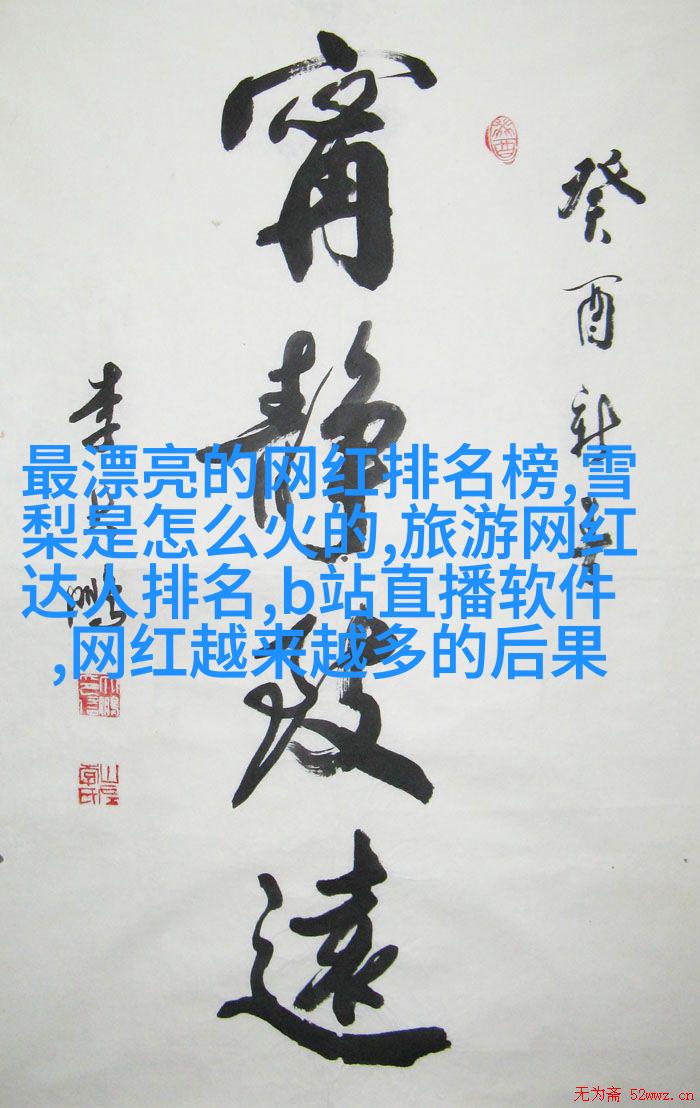 癸酉新
甯靜致遠
李
最漂亮的网红排名榜,雪
梨是怎么火的,旅游网红
达人排名,b站直播软件
,网红越来越多的后果
无为斋 52wwz.cn